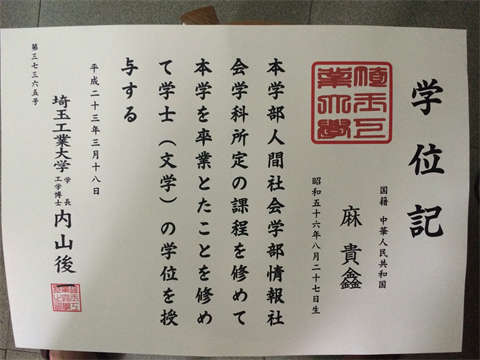 学位記
国籍 中華人民共和国
麻貴鑫
昭和五十六年八月二十七日生
本学部人間社会学部情報社
会学科所定の課程を修めて
本学を卒業とたことを修め
て学士（文学）の学位を授
与する
平成二十三年三月十八日
埼玉工業大学 学長 工学博士 内山後一
第三七三六五号